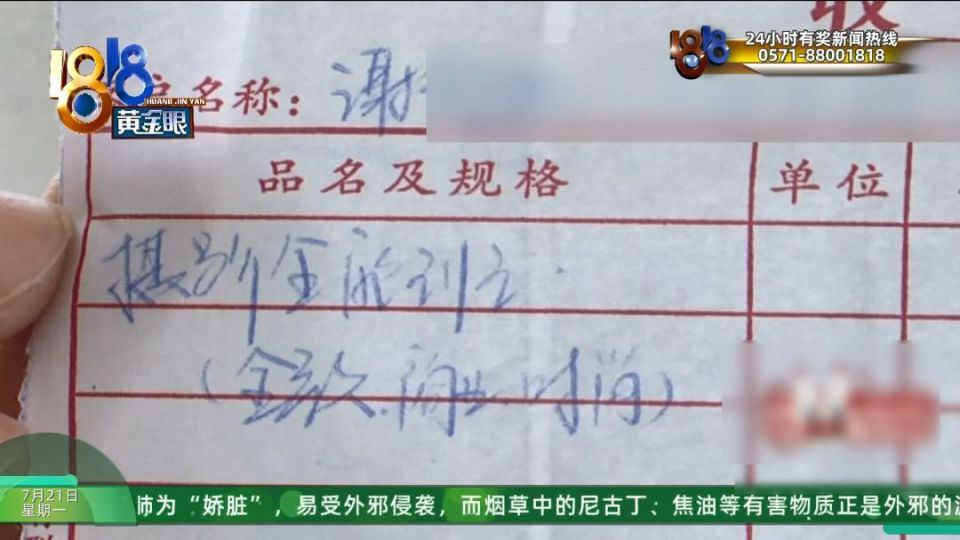 收
1818
HUANG JIN YAN
黄金眼
1818
24小时有奖新闻热线
0571-88001818
户名称：谢
品名及规格
单位
摄影全能列主
(全款.商业.时尚)
7月21日
星期一
师为“娇脏”，易受外邪侵袭，而烟草中的尼古丁、焦油等有害物质正是外邪的